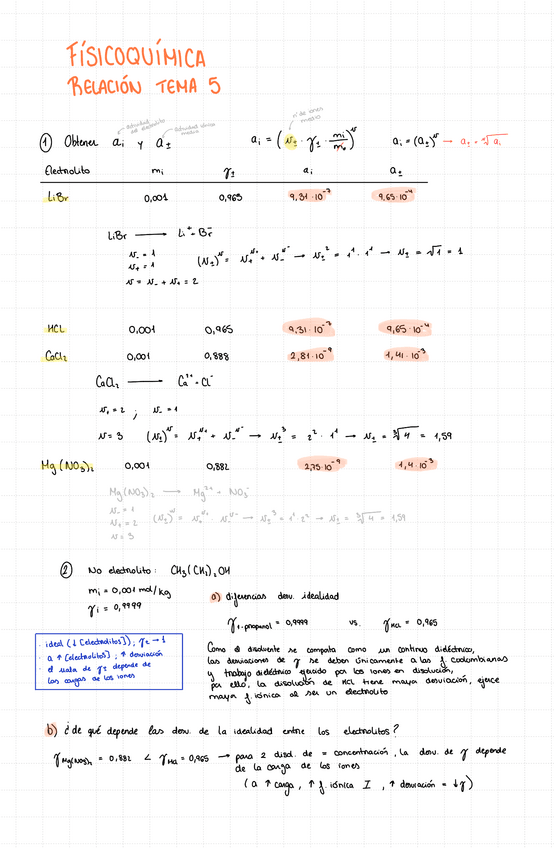 FÍSICOQUÍMICA
RELACIÓN TEMA 5
actividad del electrolito
actividad iónica media
nº de iones medio
① Obtener aᵢ y a± aᵢ = (ν± · γ± · mᵢ/m₀)^ν aᵢ = (a±)^ν → a± = ᵛ√aᵢ
Electrolito mᵢ γ± aᵢ a±
LiBr 0,001 0,965 9,31·10⁻⁷ 9,65·10⁻⁴
LiBr ⟶ Li⁺ + Br⁻
ν₋ = 1
ν₊ = 1
(ν±)^ν = ν₊^ν⁺ + ν₋^ν⁻ → ν±² = 1¹ · 1¹ → ν± = √1 = 1
ν = ν₋ + ν₊ = 2
HCl 0,001 0,965 9,31·10⁻⁷ 9,65·10⁻⁴
CaCl₂ 0,001 0,888 2,81·10⁻⁹ 1,41·10⁻³
CaCl₂ ⟶ Ca²⁺ + Cl⁻
ν₊ = 2 ; ν₋ = 1
ν = 3 (ν±)^ν = ν₊^ν⁺ + ν₋^ν⁻ → ν±³ = 2² · 1¹ → ν± = ³√4 = 1,59
Mg(NO₃)₂ 0,001 0,882 2,75·10⁻⁹ 1,4·10⁻³
Mg(NO₃)₂ ⟶ Mg²⁺ + NO₃⁻
ν₋ = 1
ν₊ = 2 (ν±)^ν = ν₊^ν⁺ · ν₋^ν⁻ → ν±³ = 1¹ · 2² → ν± = ³√4 = 1,59
ν = 3
② No electrolito: CH₃(CH₂)₂OH
mᵢ = 0,001 mol/kg
γᵢ = 0,9999
a) diferencias desv. idealidad
γ1-propanol = 0,9999 vs. γHCl = 0,965
· ideal (↓[electrolitos]); γ± → 1
· a ↑ [electrolitos]; ↑ desviación
· el valor de γ± depende de
las cargas de los iones
Como el disolvente se comporta como un continuo dieléctrico,
las desviaciones de γ se deben únicamente a las f coulombianas
y trabajo dieléctrico ejercido por los iones en disolución,
por ello, la disolución de HCl tiene mayor desviación, ejerce
mayor f iónica al ser un electrolito
b) ¿de qué depende las desv. de la idealidad entre los electrolitos?
γMg(NO₃)₂ = 0,882 < γHCl = 0,965 → para 2 disol. de = concentración, la desv. de γ depende
de la carga de los iones
(a ↑ carga, ↑ f iónica I, ↑ desviación = ↓γ)